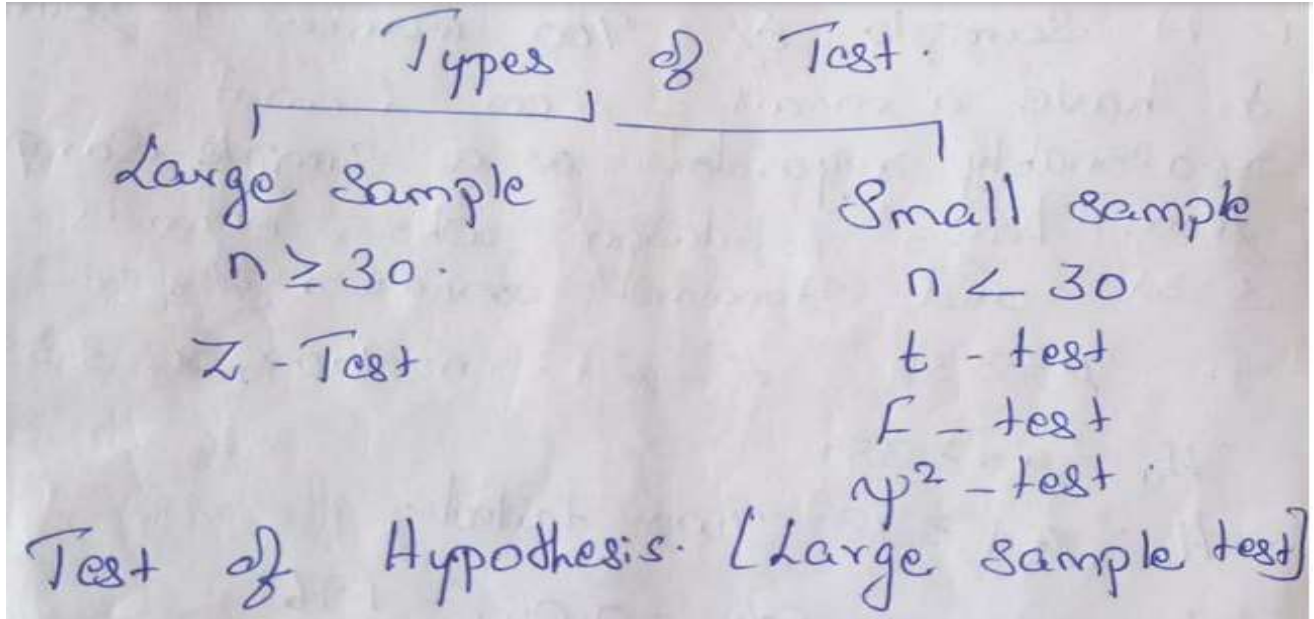 Types of Test.
Large Sample
Small sample
n ≥ 30.
n < 30
Z - Test
t - test
F - test
ψ² - test.
Test of Hypothesis. [Large sample test]